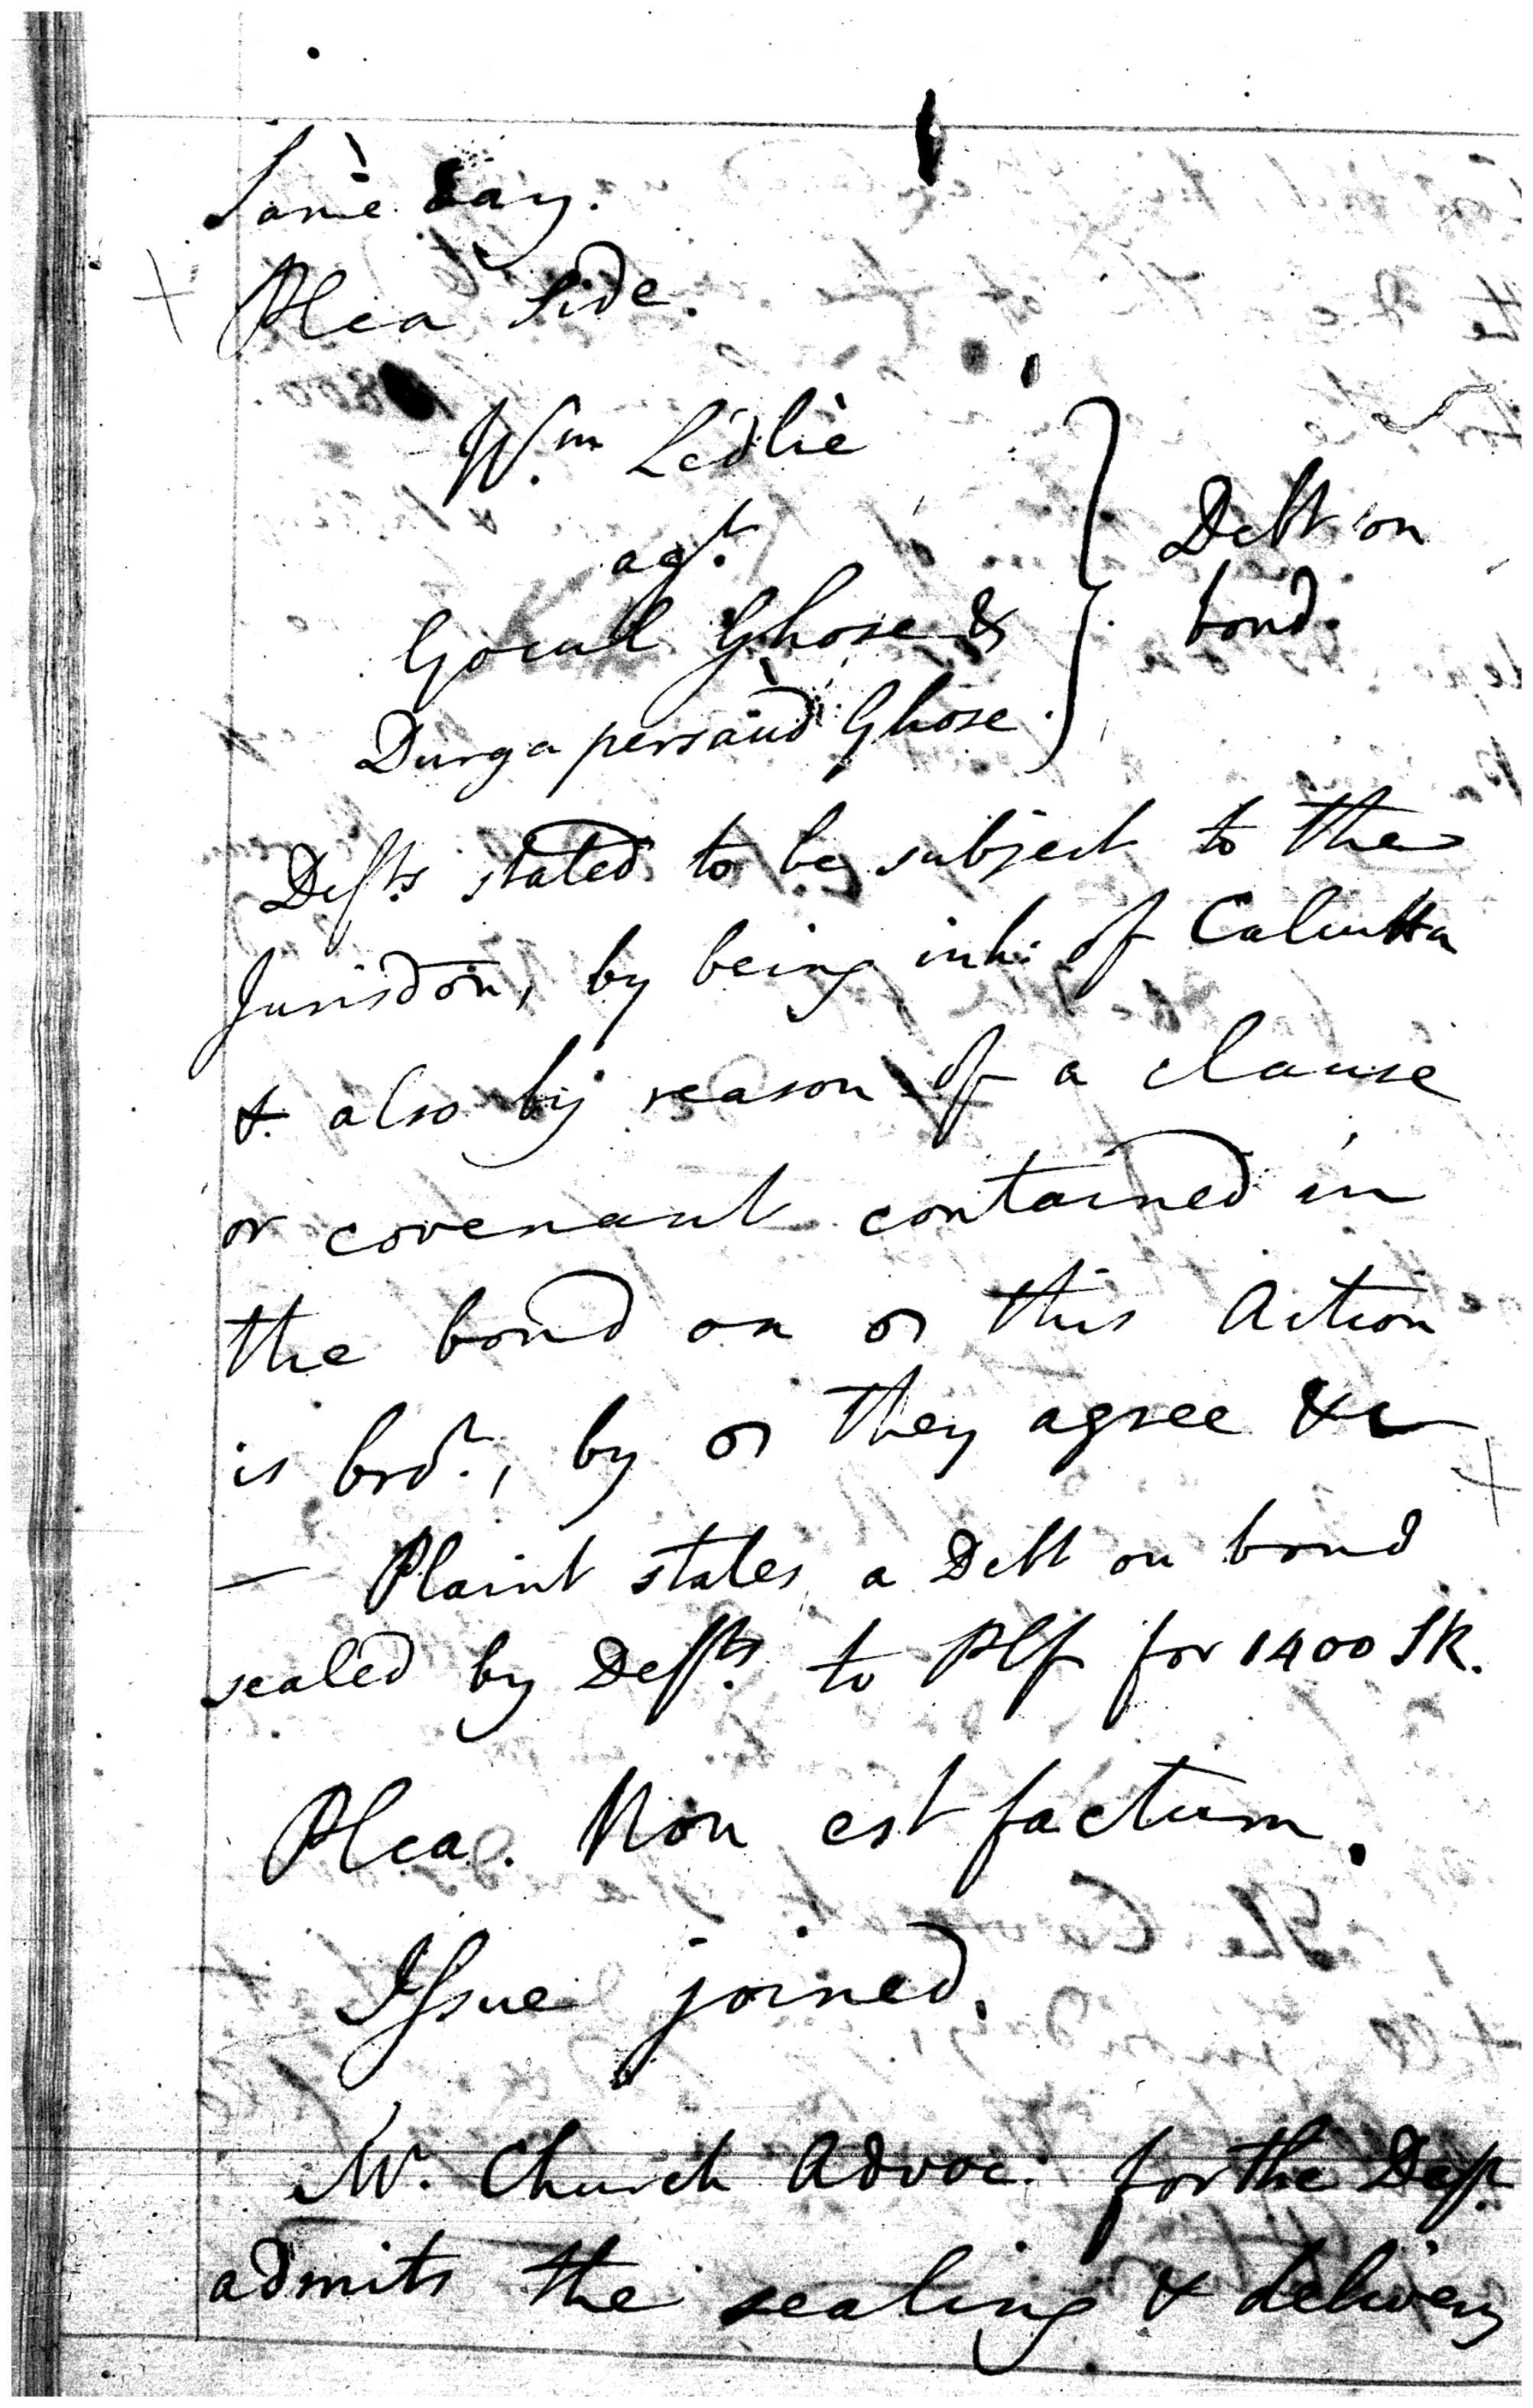 Same day.
Plea Side.
Wm Ledlie
agt.
Gocul Ghose &
Durga persaud Ghose.
Debt on
bond.
Defts stated to be subject to the
Jurisdon, by being inh: of Calcutta
& also by reason of a clause
or covenant contained in
the bond on this Action
is brot., by they agree &c
— Plaint states a Debt on bond
sealed by Defts. to Plf for 1400 SR.
Plea. Non est factum.
Issue joined.
Mr. Church Advoc. for the Deft.
admits the sealing & delivery